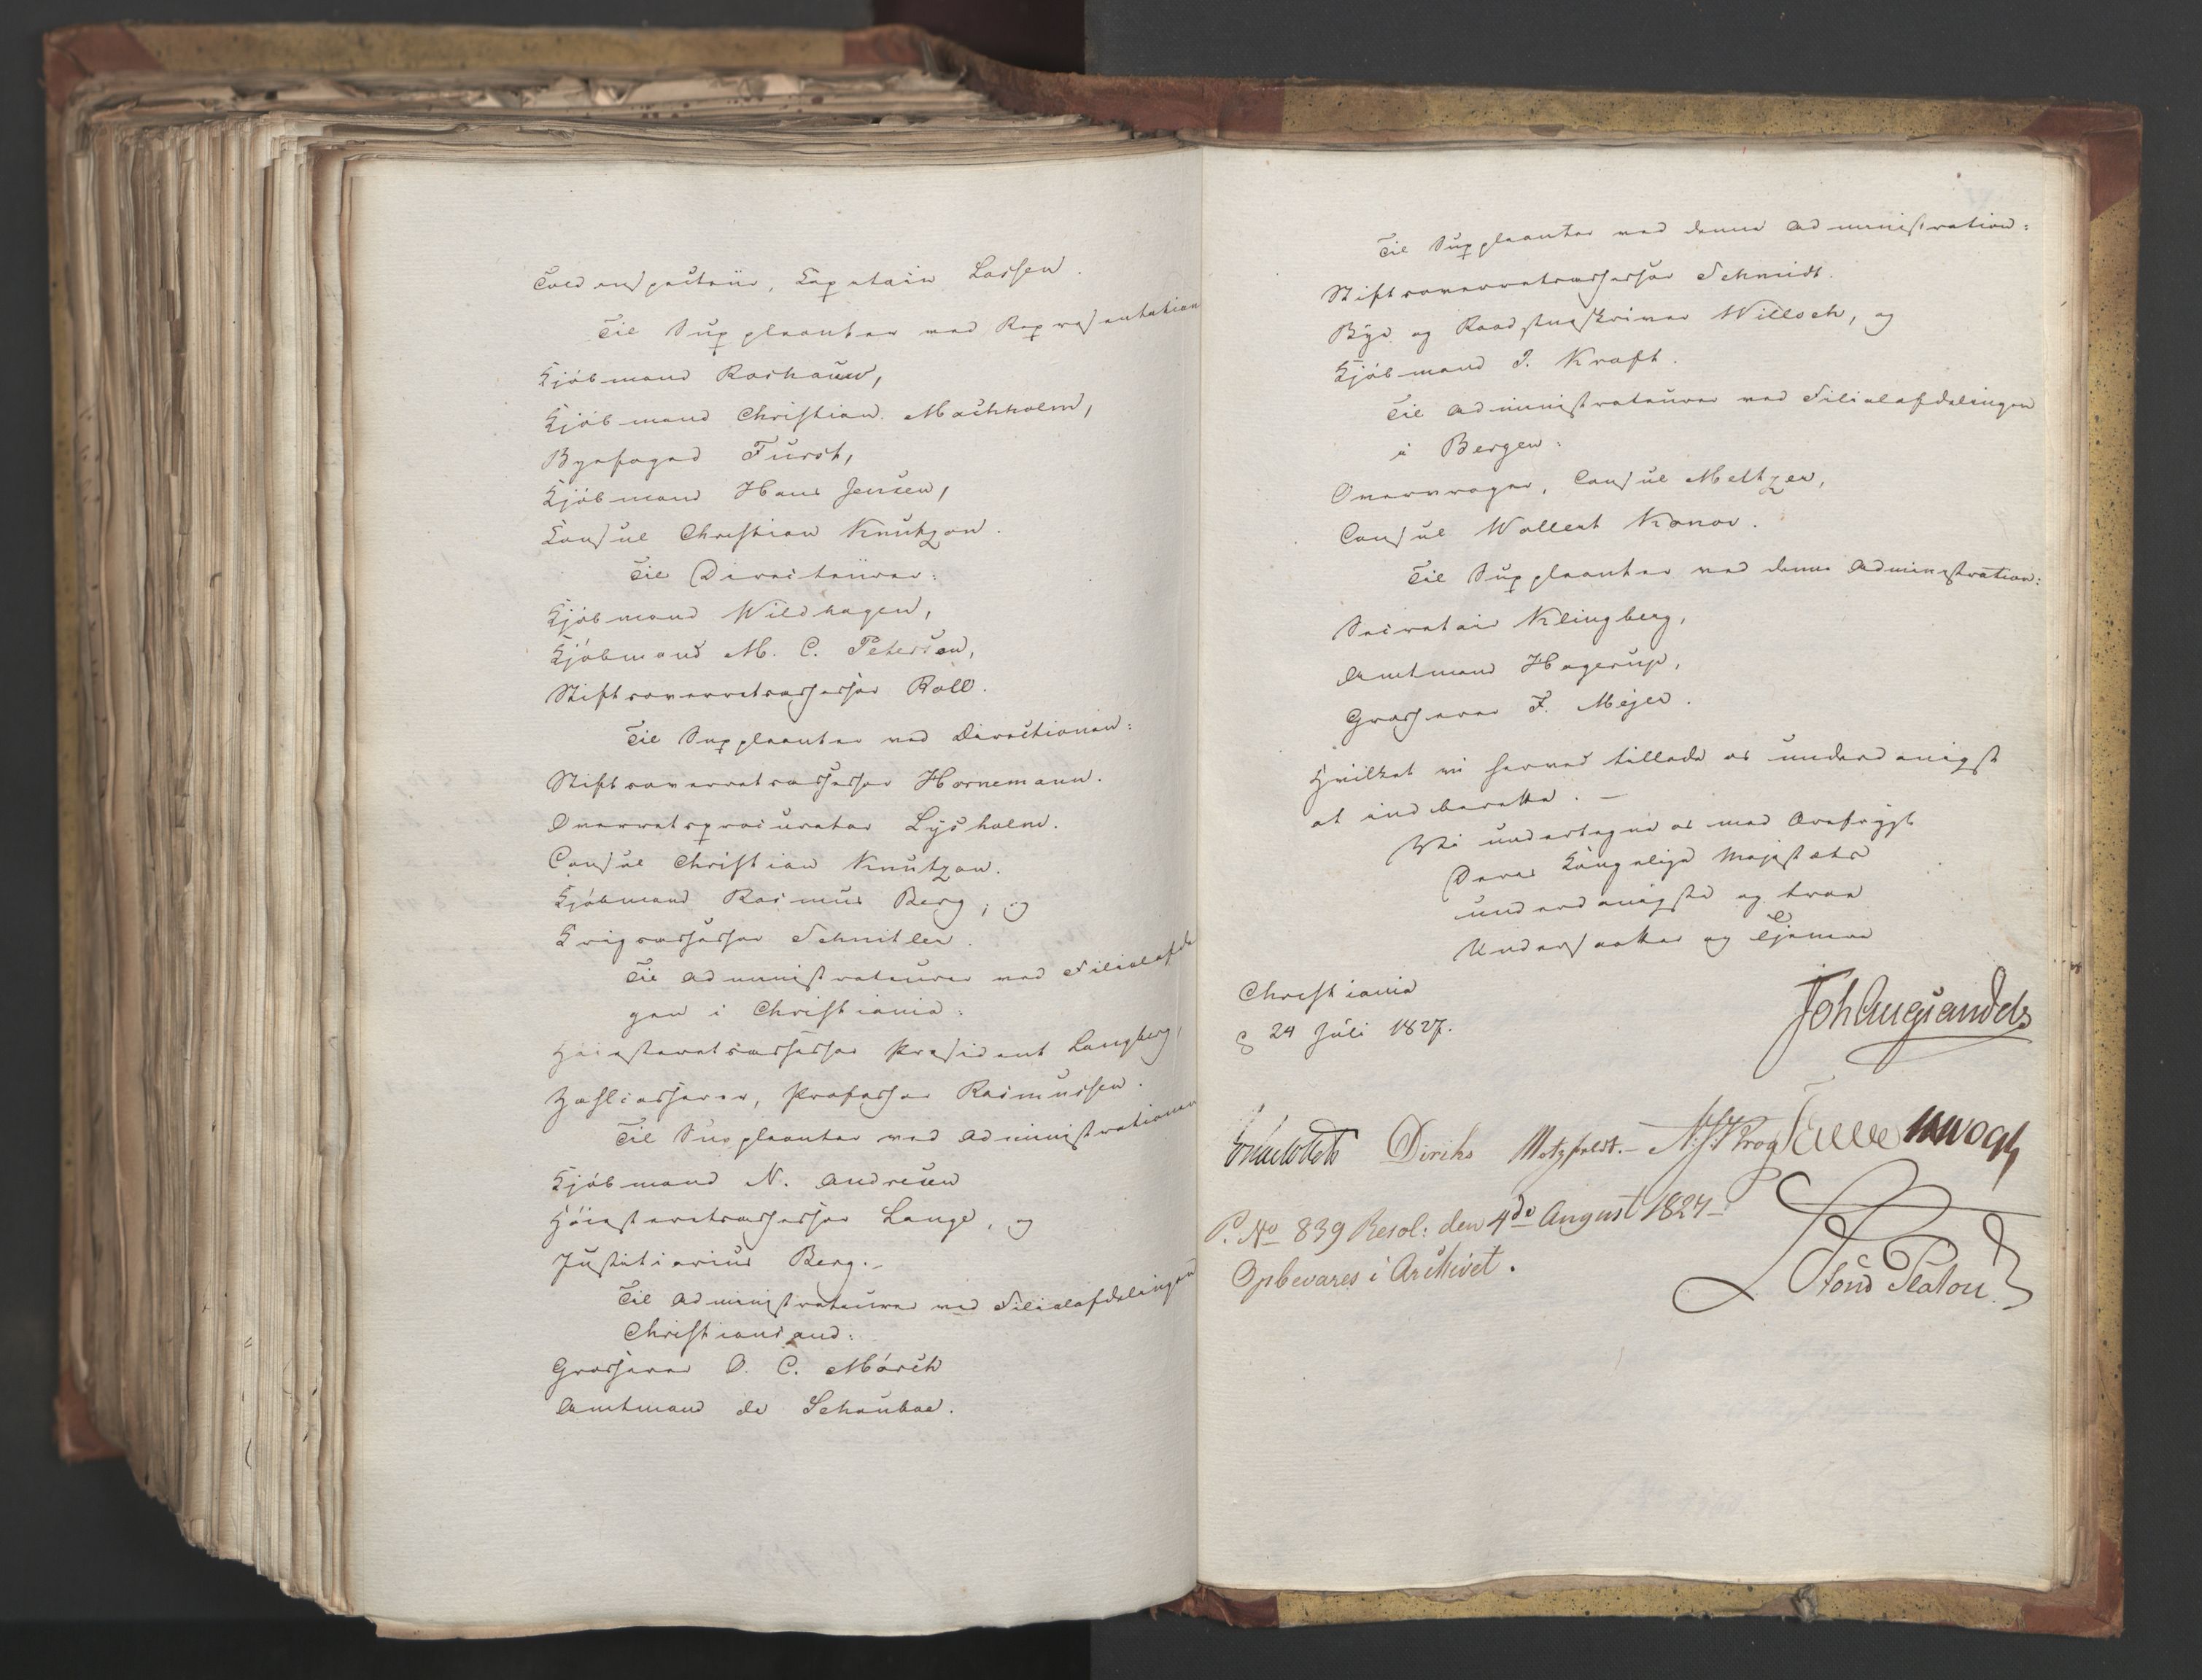 Toldinspecteur, Capitain Lassen.
Til Suppleanter ved Repræsentation
Kjøbmand Roshauw,
Kjøbmand Christian Mackholm,
Byefoged Fürst,
Kjøbmand Hans Jensen,
Konsul Christian Knutzon.
Til Directeurer:
Kjøbmand Wildhagen,
Kjøbmand M. C. Petersen,
Stiftsoverretsassessor Roll.
Til Suppleanter ved Directionen:
Stiftsoverretsassessor Hornemann.
Overretsprocurator Lysholm.
Consul Christian Knutzon.
Kjøbmand Rasmus Berg, og
Krigsassessor Schnitler.
Til Administrateurer ved Filialafde
gen i Christiania:
Høiesteretsassessor President Langberg,
Zahlcasserer, Professor Rasmussen.
Til Suppleanter ved Administrationen
Kjøbmand N. Andresen
Høiesteretsassessor Lange, og
Justitiarius Berg.-
Til Administrateurer ved Filialafdelingen
Christiansand:
Grosserer O. C. Mørch
Amtmand de Schouboe.
Til Suppleanter ved denne Administration:
Stiftsoverretsassessor Schmidt.
Bye og Raadstueskriver Willoch, og
Kjøbmand I. Kraft.
Til Administrateurer ved Filialafdelingen
i Bergen:
Overvrager, Consul Meltzer,
Consul Wollert Konow.
Til Suppleanter ved denne Administration:
Secretair Klingberg,
Amtmand Hagerup,
Grosserer F. Mejer.
Hvilket vi herved tillade os underdanigst
at indberette. -
Vi undertegne os med Ærefrygt
Deres Kongelige Majestæts
underdanigste og troe
Undersaatter og Tjenere
Christiania
d 24 Juli 1827.
Joh Aug Sandels
Diriks Motzfeldt.- N. J. Krog Fasting
P. No 839 Resol: den 4de August 1827-
Opbevares i Archivet.
Stoud Platou